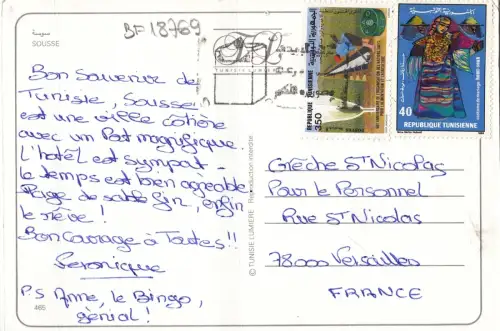 BF18769
سوسة
SOUSSE
Bon Souvenir de
Tunisie, Sousse
est une ville côtière
avec un Port magnifique.
l'hôtel est sympat -
le temps est bien agréable
Plage de sable fin, enfin
le rêve !
Bon Courage à Toutes !!
Veronique
P.S Anne, le Bingo,
génial !
465
© TUNISIE LUMIERE Reproduction interdite
350
REPUBLIQUE TUNISIENNE
40
REPUBLIQUE TUNISIENNE
Crèche St Nicolas
Pour le Personnel
Rue St Nicolas
78000 Versailles
FRANCE